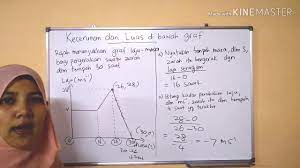 Made with
KINEMASTER
Kecerunan dan Luas di bawah graf
Rajah menunjukkan graf laju-masa
bagi pergerakan suatu zarah
dlm tempoh 30 saat
Laju (ms⁻¹)
(26, 28)
(30, 0)
a) Nyatakan tempoh masa, dlm s,
zarah itu bergerak dgn
laju seragam
16 - 0
= 16 saat
b) Hitung kadar perubahan laju,
dlm ms⁻², zarah itu dlm tempoh
4 saat yg terakhir
28 - 0
26 - 30
= 28
-4
= -7 ms⁻²